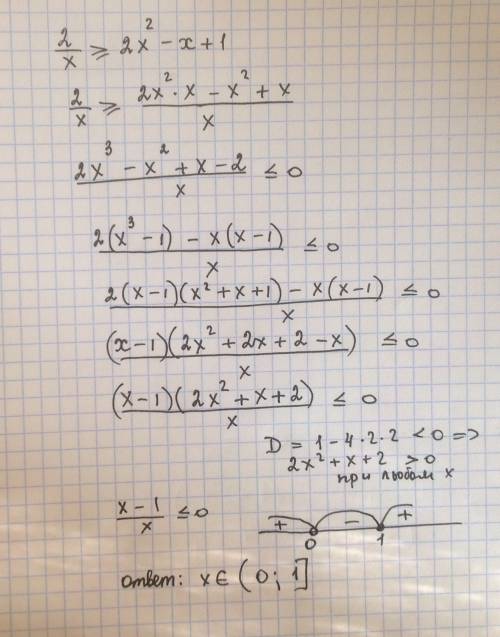 2/x ⩾ 2x² - x + 1
2/x ⩾ (2x²·x - x² + x)/x
(2x³ - x² + x - 2)/x ≤ 0
(2(x³ - 1) - x(x - 1))/x ≤ 0
(2(x-1)(x² + x + 1) - x(x-1))/x ≤ 0
((x-1)(2x² + 2x + 2 - x))/x ≤ 0
((x-1)(2x² + x + 2))/x ≤ 0
D = 1 - 4·2·2 < 0 =>
2x² + x + 2 > 0
при любом x
(x-1)/x ≤ 0
+ - +
0 1
ответ: x ∈ (0; 1]